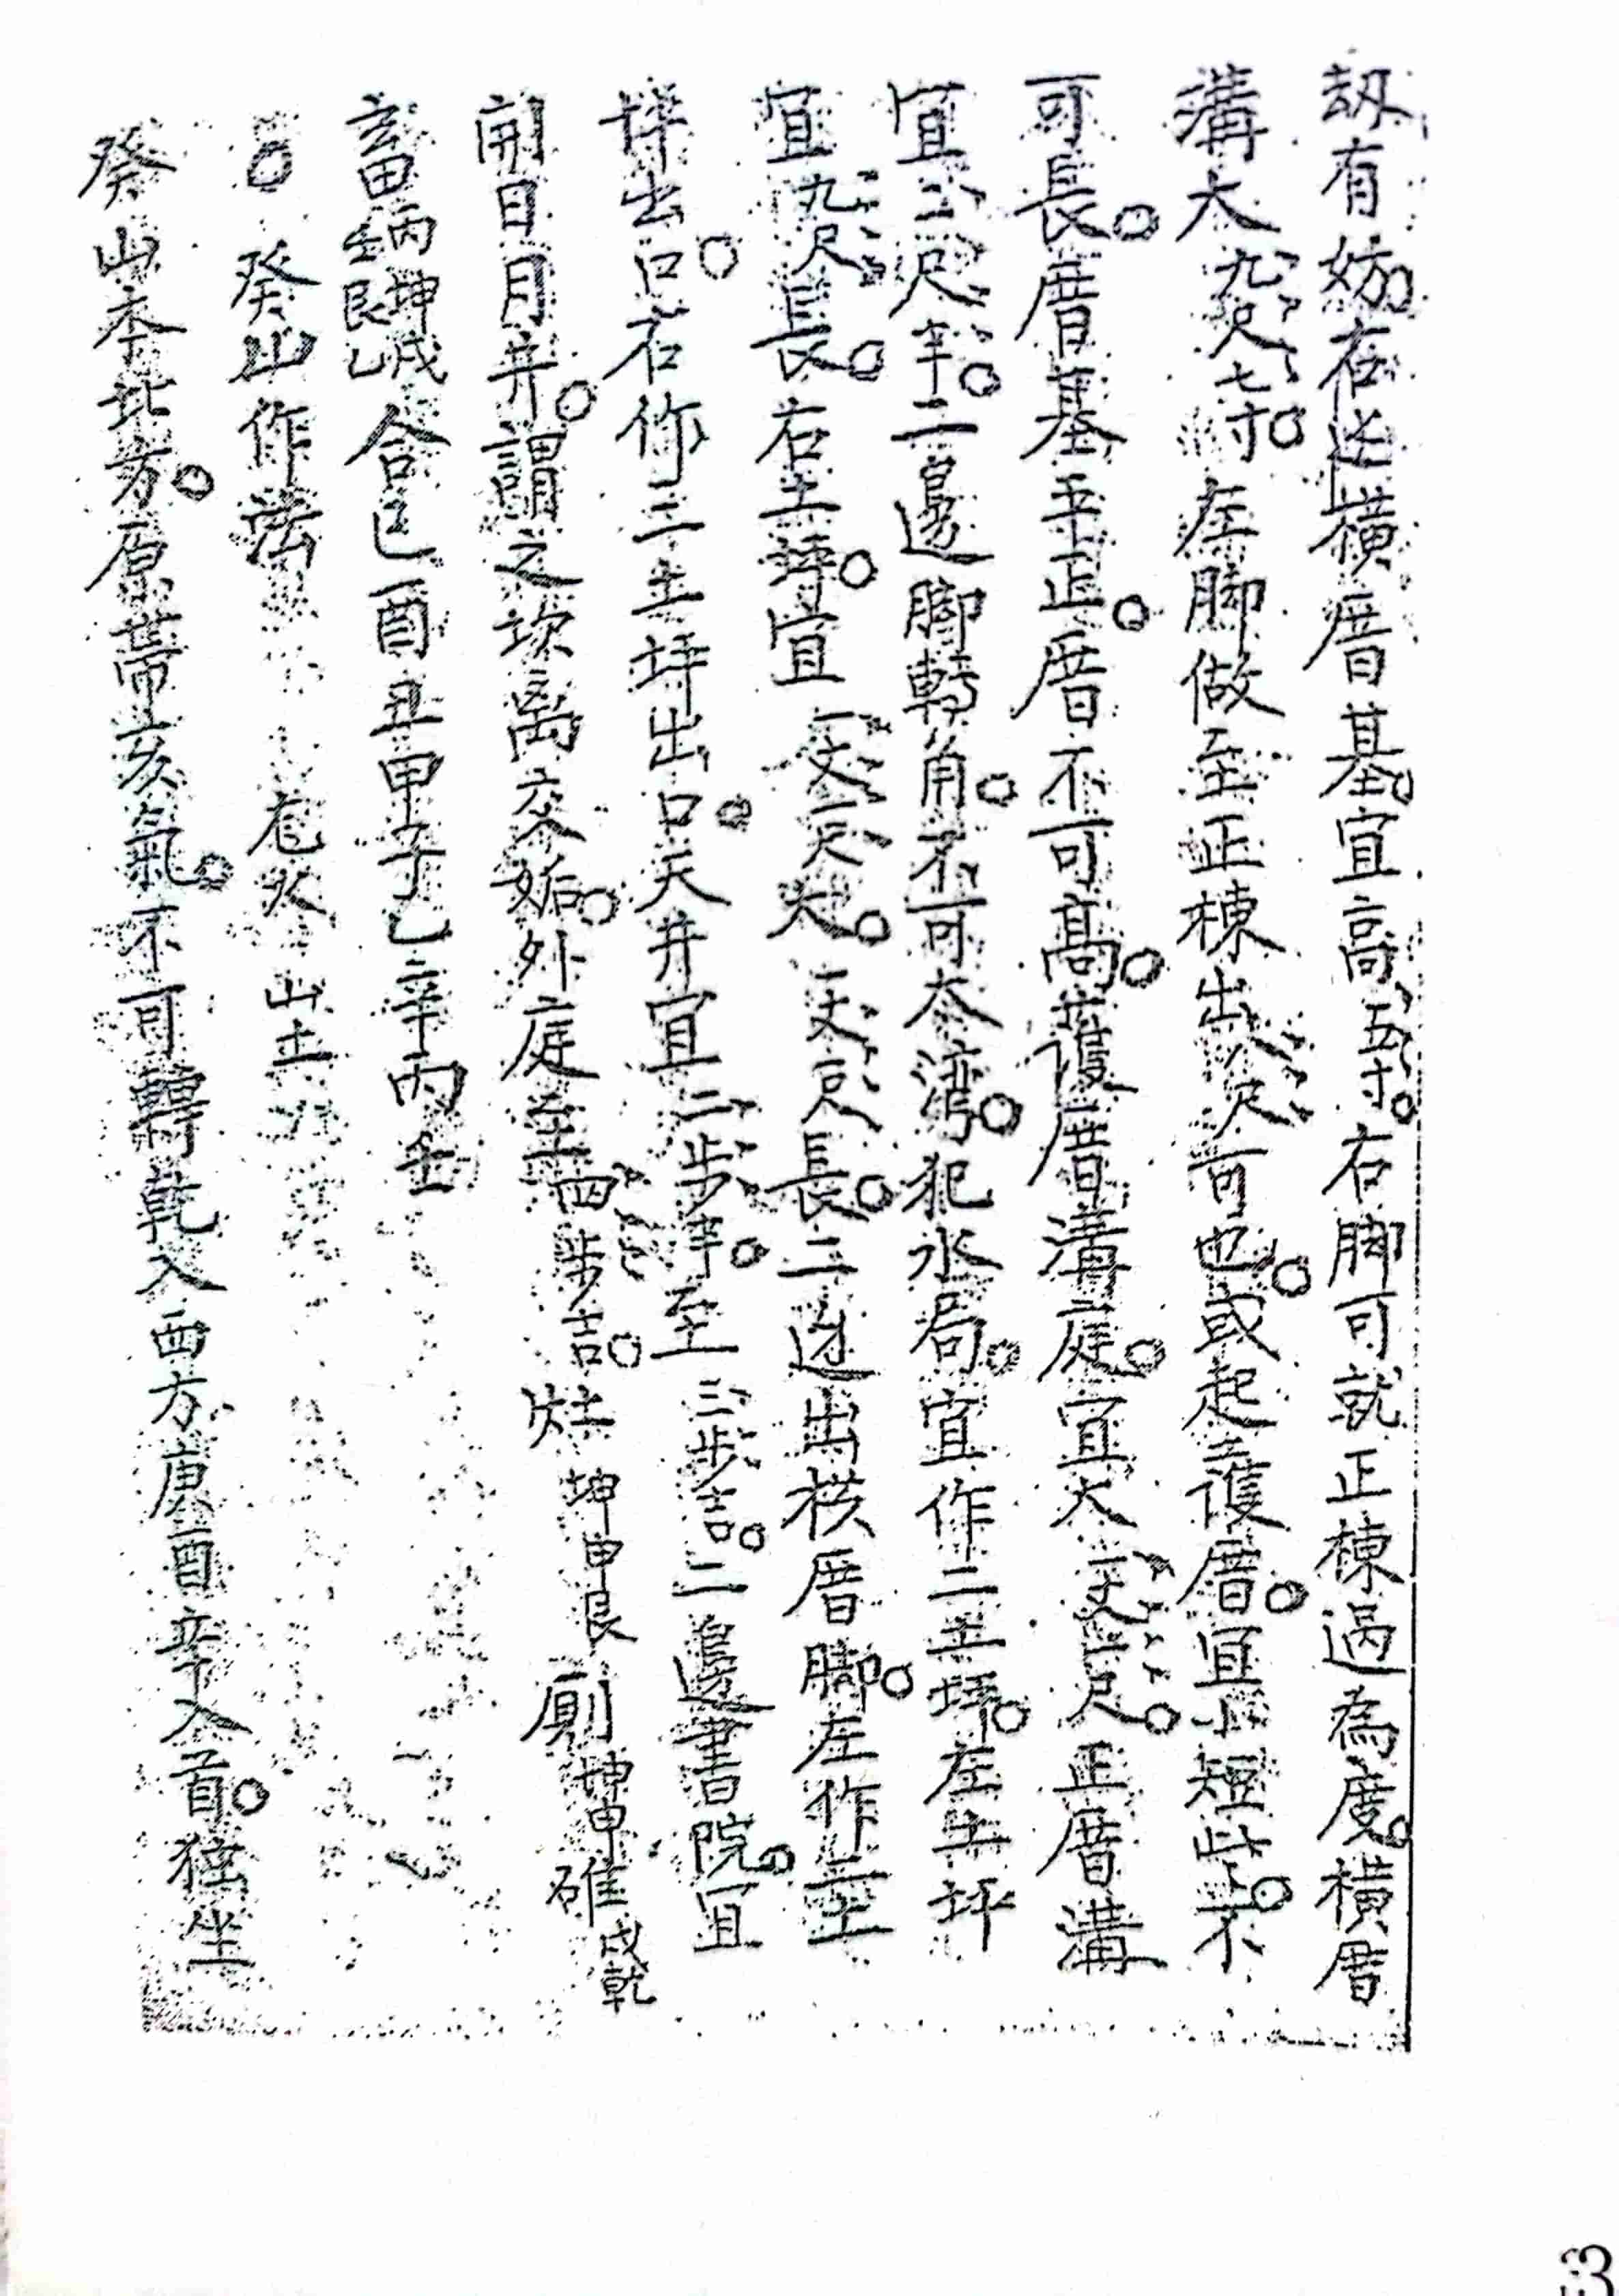 刼有妨。在邊橫厝基。宜高五寸。右脚可就正棟過為度。橫厝
溝大九尺七寸。左脚做至正棟出八尺可也。或起護厝。宜小短些。不
可長。厝基平正。厝不可高。護厝溝庭。宜大一丈二尺。正厝溝
宜三尺半。二邊腳轉角。不可太灣。犯水局。宜作二土坪。左土坪
宜九尺長。右土埓。宜一丈大。長。二边出横厝脚。左作二土
埓出口。右作三土埓出口。天井宜二步半。至三步吉。二邊書院。宜
開日月井。謂之坎离交姤。外庭至四步吉。灶坤申艮廁坤申碓戌乾
畜丙坤戌壬艮乙合巳酉丑甲子乙辛丙壬
癸山作法 山土
癸山本北方。原帶亥氣。不可轉乾入西方庚酉辛入首。独坐
53